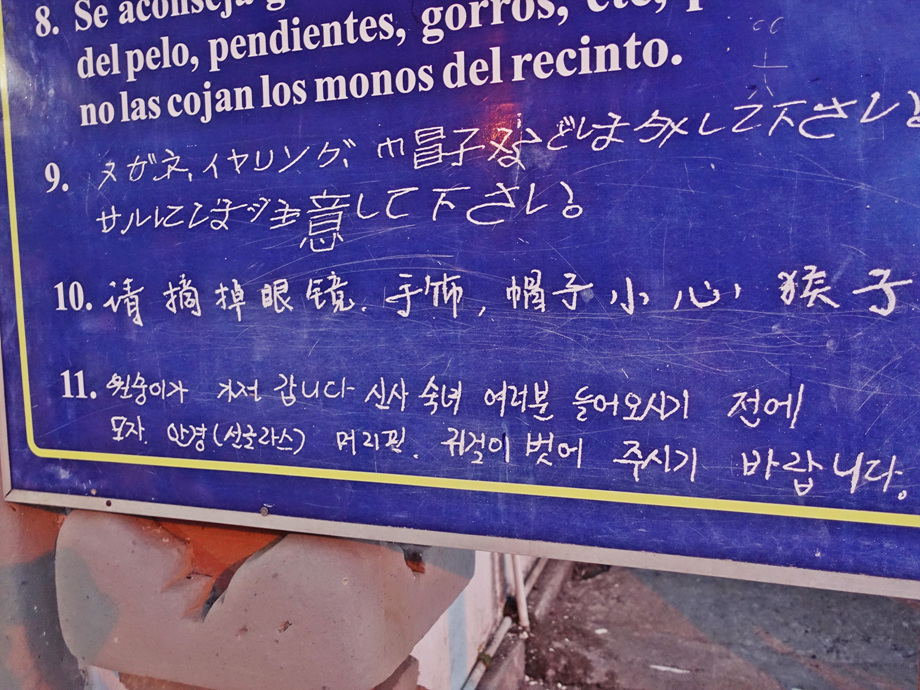 8. Se aconseja
del pelo, pendientes, gorros, etc,
no las cojan los monos del recinto.
9. メガネ、イヤリング、巾冒子などはずして下さい。
サルにはご注意して下さい。
10. 请摘掉眼镜. 手饰, 帽子小心, 猴子
11. 원숭이가 가져 갑니다 신사 숙녀 여러분 들어오시기 전에
모자. 안경(선글라스) 머리핀. 귀걸이 벗어 주시기 바랍니다.